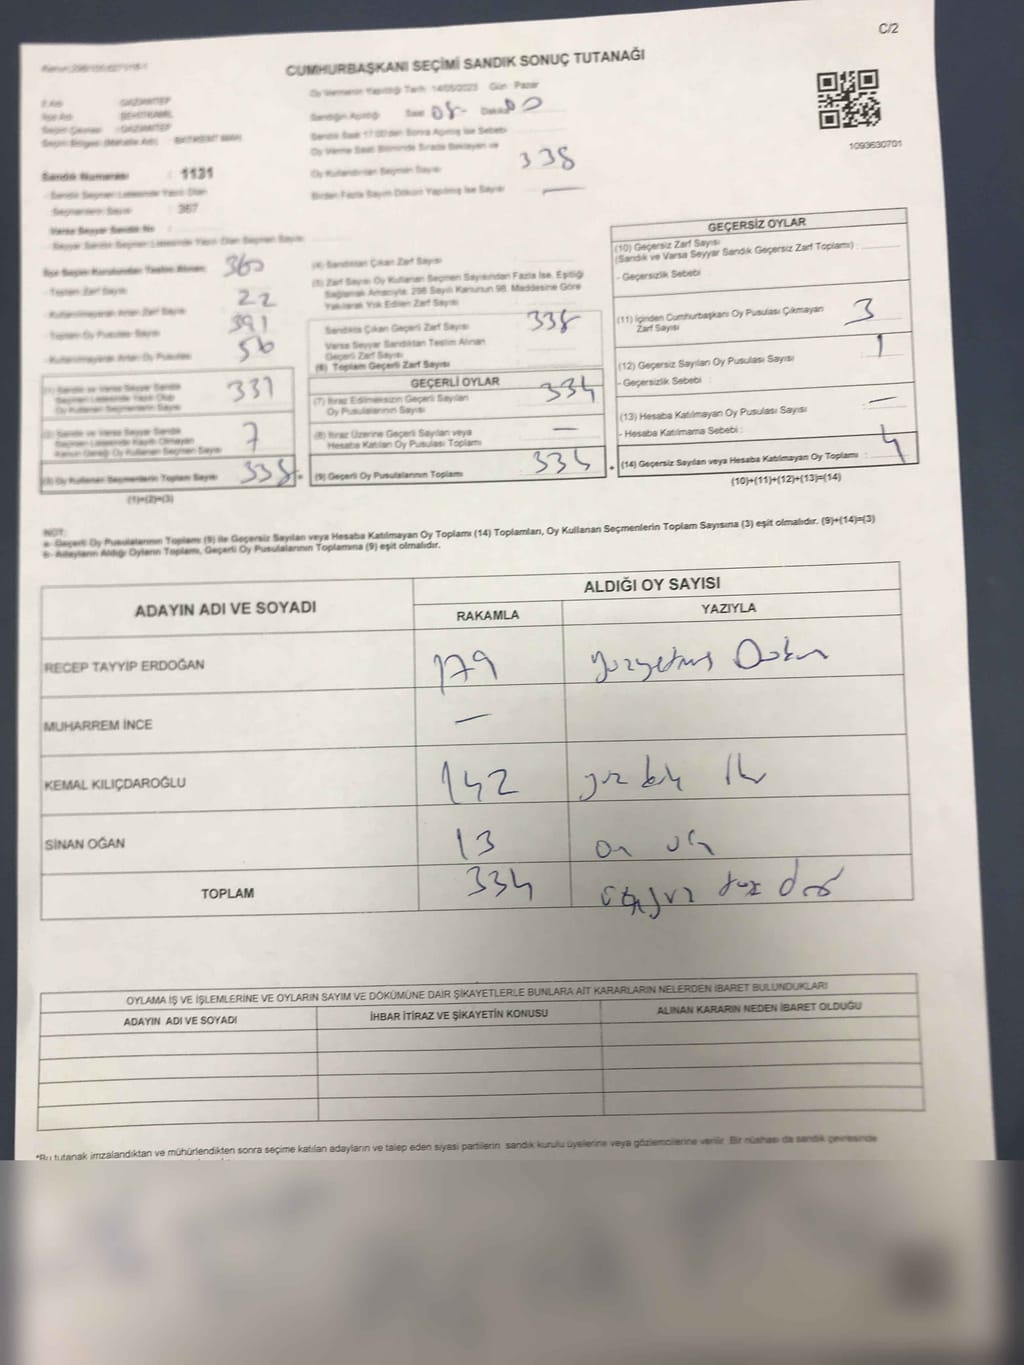 C/2
CUMHURBAŞKANI SEÇİMİ SANDIK SONUÇ TUTANAĞI
Oy Vermenin Yapıldığı Tarih: 14/05/2023 Gün: Pazar
İl Adı : GAZİANTEP
İlçe Adı : ŞEHİTKAMİL
Seçim Çevresi : GAZİANTEP
Seçim Bölgesi (Mahalle Adı) :
Sandığın Açıldığı Saat 08- Dakika 00
Sandık Saat 17:00'den Sonra Açılmış İse Sebebi
Oy Verme Saati Bitiminde Sırada Bekleyen ve
Oy Kullandırılan Seçmen Sayısı 338
Birden Fazla Sayım Döküm Yapılmış İse Sayısı —
1093630701
Sandık Numarası : 1131
- Sandık Seçmen Listesinde Yazılı Olan
Seçmenlerin Sayısı : 367
Varsa Seyyar Sandık No :
Seyyar Sandık Seçmen Listesinde Yazılı Olan Seçmen Sayısı
İlçe Seçim Kurulundan Teslim Alınan; 360
- Toplam Zarf Sayısı
- Kullanılmayarak Artan Zarf Sayısı 22
- Toplam Oy Pusulası Sayısı 391
- Kullanılmayarak Artan Oy Pusulası 56
(1) Sandık ve Varsa Seyyar Sandık
Seçmen Listesinde Yazılı Olup
Oy Kullanan Seçmenlerin Sayısı 331
(2) Sandık ve Varsa Seyyar Sandık
Seçmen Listesinde Kayıtlı Olmayan
Kanun Gereği Oy Kullanan Seçmen Sayısı 7
(3) Oy Kullanan Seçmenlerin Toplam Sayısı 338
(1)+(2)=(3)
(4) Sandıktan Çıkan Zarf Sayısı
(5) Zarf Sayısı Oy Kullanan Seçmen Sayısından Fazla İse, Eşitliği
Sağlamak Amacıyla; 298 Sayılı Kanunun 98. Maddesine Göre
Yakılarak Yok Edilen Zarf Sayısı
Sandıkta Çıkan Geçerli Zarf Sayısı 338
Varsa Seyyar Sandıktan Teslim Alınan
Geçerli Zarf Sayısı
(6) Toplam Geçerli Zarf Sayısı
GEÇERLİ OYLAR
(7) İtiraz Edilmeksizin Geçerli Sayılan
Oy Pusulalarının Sayısı 334
(8) İtiraz Üzerine Geçerli Sayılan veya
Hesaba Katılan Oy Pusulası Toplamı —
(9) Geçerli Oy Pusulalarının Toplamı 334
GEÇERSİZ OYLAR
(10) Geçersiz Zarf Sayısı
(Sandık ve Varsa Seyyar Sandık Geçersiz Zarf Toplamı) :
- Geçersizlik Sebebi
(11) İçinden Cumhurbaşkanı Oy Pusulası Çıkmayan
Zarf Sayısı 3
(12) Geçersiz Sayılan Oy Pusulası Sayısı 1
- Geçersizlik Sebebi :
(13) Hesaba Katılmayan Oy Pusulası Sayısı —
- Hesaba Katılmama Sebebi :
(14) Geçersiz Sayılan veya Hesaba Katılmayan Oy Toplamı : 4
(10)+(11)+(12)+(13)=(14)
NOT:
a- Geçerli Oy Pusulalarının Toplamı (9) ile Geçersiz Sayılan veya Hesaba Katılmayan Oy Toplamı (14) Toplamları, Oy Kullanan Seçmenlerin Toplam Sayısına (3) eşit olmalıdır. (9)+(14)=(3)
b- Adayların Aldığı Oyların Toplamı, Geçerli Oy Pusulalarının Toplamına (9) eşit olmalıdır.
ADAYIN ADI VE SOYADI ALDIĞI OY SAYISI
RAKAMLA YAZIYLA
RECEP TAYYİP ERDOĞAN 179 yüzyetmiş Dokuz
MUHARREM İNCE —
KEMAL KILIÇDAROĞLU 142 yüz kırk iki
SİNAN OĞAN 13 on üç
TOPLAM 334 üçyüz otuz dört
OYLAMA İŞ VE İŞLEMLERİNE VE OYLARIN SAYIM VE DÖKÜMÜNE DAİR ŞİKAYETLERLE BUNLARA AİT KARARLARIN NELERDEN İBARET BULUNDUKLARI
ADAYIN ADI VE SOYADI İHBAR İTİRAZ VE ŞİKAYETİN KONUSU ALINAN KARARIN NEDEN İBARET OLDUĞU
*Bu tutanak imzalandıktan ve mühürlendikten sonra seçime katılan adayların ve talep eden siyasi partilerin sandık kurulu üyelerine veya gözlemcilerine verilir. Bir nüshası da sandık çevresinde